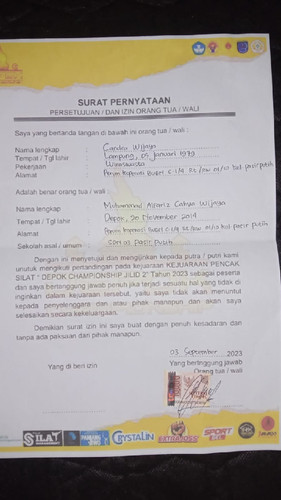 SURAT PERNYATAAN
PERSETUJUAN / DAN IZIN ORANG TUA / WALI
Saya yang bertanda tangan di bawah ini orang tua / wali :
Nama lengkap : Candra Wijaya
Tempat / Tgl lahir : Lampung, 05 Januari 1979
Pekerjaan : Wiraswasta
Alamat : Perum Koperasi Bupel C.1/4 Rt /Rw 01/10 kel pasir putih
Adalah benar orang tua / wali :
Nama lengkap : Muhammad Cahya Wijaya
Tempat / Tgl lahir : Depok, 20 November 2014
Alamat : Perum Koperasi Bupel C.1/4 Rt /Rw 01/10 kel pasir putih
Sekolah asal / umum : Pasir Putih
Dengan ini menyetujui dan mengijinkan kepada putra / putri kami
untuk mengikuti pertandingan pada kejuaraan KEJUARAAN PENCAK
SILAT " DEPOK CHAMPIONSHIP JILID 2" Tahun 2023 sebagai peserta
dan saya bertanggung jawab penuh jika terjadi sesuatu hal yang tidak di
inginkan dalam kejuaraan tersebut, yaitu saya tidak akan menuntut
kepada penyelenggara dan atau pihak manapun dan akan saya
selesaikan secara kekeluargaan.
Demikian surat izin ini saya buat dengan penuh kesadaran dan
tanpa ada paksaan dari pihak manapun.
03 September 2023
Yang di beri izin
Yang bertanggung jawab
Orang tua / wali
SILAT
CRYSTALIN
EXTRAJOSS
SPORT